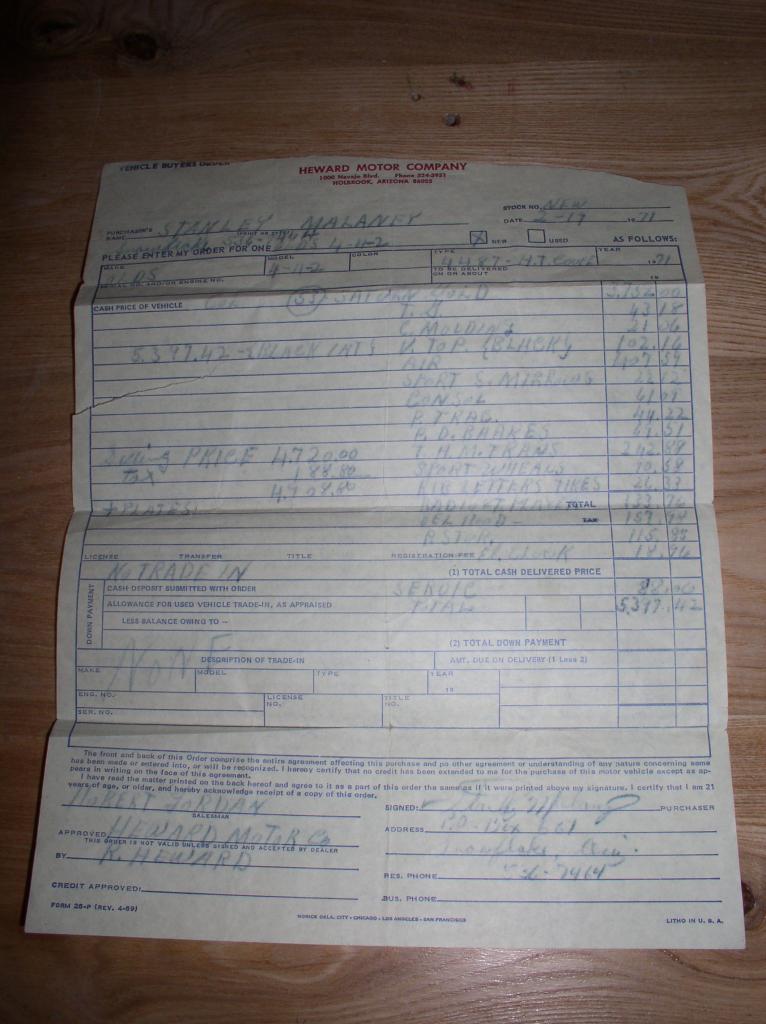 VEHICLE BUYERS ORDER
HEWARD MOTOR COMPANY
1000 Navajo Blvd. Phone 524-3931
HOLBROOK, ARIZONA 86025
STOCK NO. NEW
DATE 2-17 1971
PURCHASER'S NAME STANLEY MALANEY
PLEASE ENTER MY ORDER FOR ONE OLDS 4-4-2 X NEW USED AS FOLLOWS:
MAKE MODEL COLOR TYPE YEAR
OLDS 4-4-2 4487-H.T. COUPE 1971
SERIAL NO. AND/OR ENGINE NO. TO BE DELIVERED ON OR ABOUT 19
CASH PRICE OF VEHICLE 53 SATURN GOLD 3,752.00
T. G. 43.18
C. MOLDING 21.06
5,397.42 V. TOP. (BLACK) 102.16
AIR 407.59
SPORT S. MIRRORS
CONSOL
P. TRAC. 44.22
P. D. BRAKES
Selling PRICE 4,720.00 T. H. M. TRANS 242.89
Tax 188.80 SPORT WHEALS
4,908.80 LETTERS TIRES
+ PLATES TOTAL
TAX
R STER. 115.
LICENSE TRANSFER TITLE REGISTRATION FEE EL. CLOCK 18.96
NO TRADE IN (1) TOTAL CASH DELIVERED PRICE
DOWN PAYMENT
CASH DEPOSIT SUBMITTED WITH ORDER
ALLOWANCE FOR USED VEHICLE TRADE-IN, AS APPRAISED TOTAL 5,397.42
LESS BALANCE OWING TO —
NONE (2) TOTAL DOWN PAYMENT
DESCRIPTION OF TRADE-IN AMT. DUE ON DELIVERY (1 Less 2)
MAKE MODEL TYPE YEAR 19
ENG. NO. LICENSE NO. TITLE NO.
SER. NO.
The front and back of this Order comprise the entire agreement affecting this purchase and no other agreement or understanding of any nature concerning same
has been made or entered into, or will be recognized. I hereby certify that no credit has been extended to me for the purchase of this motor vehicle except as ap-
pears in writing on the face of this agreement.
I have read the matter printed on the back hereof and agree to it as a part of this order the same as if it were printed above my signature. I certify that I am 21
years of age, or older, and hereby acknowledge receipt of a copy of this order.
JORDAN
SALESMAN
SIGNED: PURCHASER
APPROVED HEWARD MOTOR Co
THIS ORDER IS NOT VALID UNLESS SIGNED AND ACCEPTED BY DEALER
ADDRESS P.O. Box
Snowflake, Ariz.
BY K. HEWARD
RES. PHONE 536-7464
CREDIT APPROVED:
BUS. PHONE
FORM 26-P (REV. 4-69)
NORICK OKLA. CITY • CHICAGO • LOS ANGELES • SAN FRANCISCO
LITHO IN U. S. A.